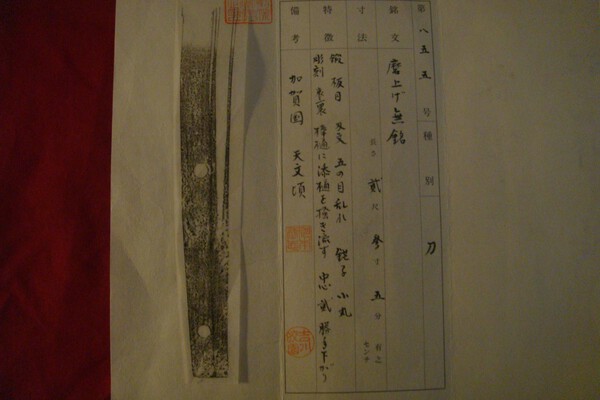 第八五五号 種別 刀
銘文 磨上げ無銘
寸法 長さ 貳尺 参寸 五分 有之 センチ
特徴 鍛 板目 刃文 五の目乱れ 鋩子 小丸
彫刻 表裏 棒樋に添樋を掻き流す 忠 鑢 勝手下がり
備考 加賀国 天文頃